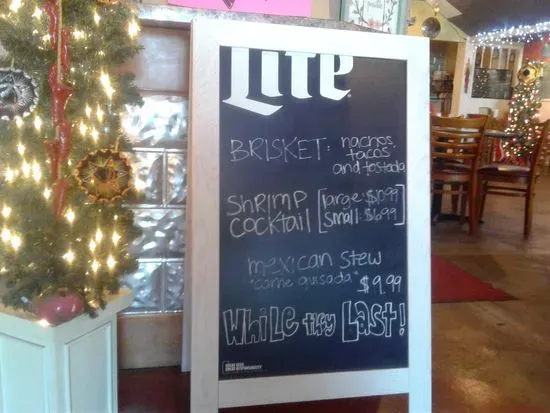 Lite
BRISKET: nachos,
tacos
and tostada
SHRIMP
COCKTAIL
[large: $10.99]
[small: $6.99]
mexican STEW
"carne guisada" $9.99
While they Last!